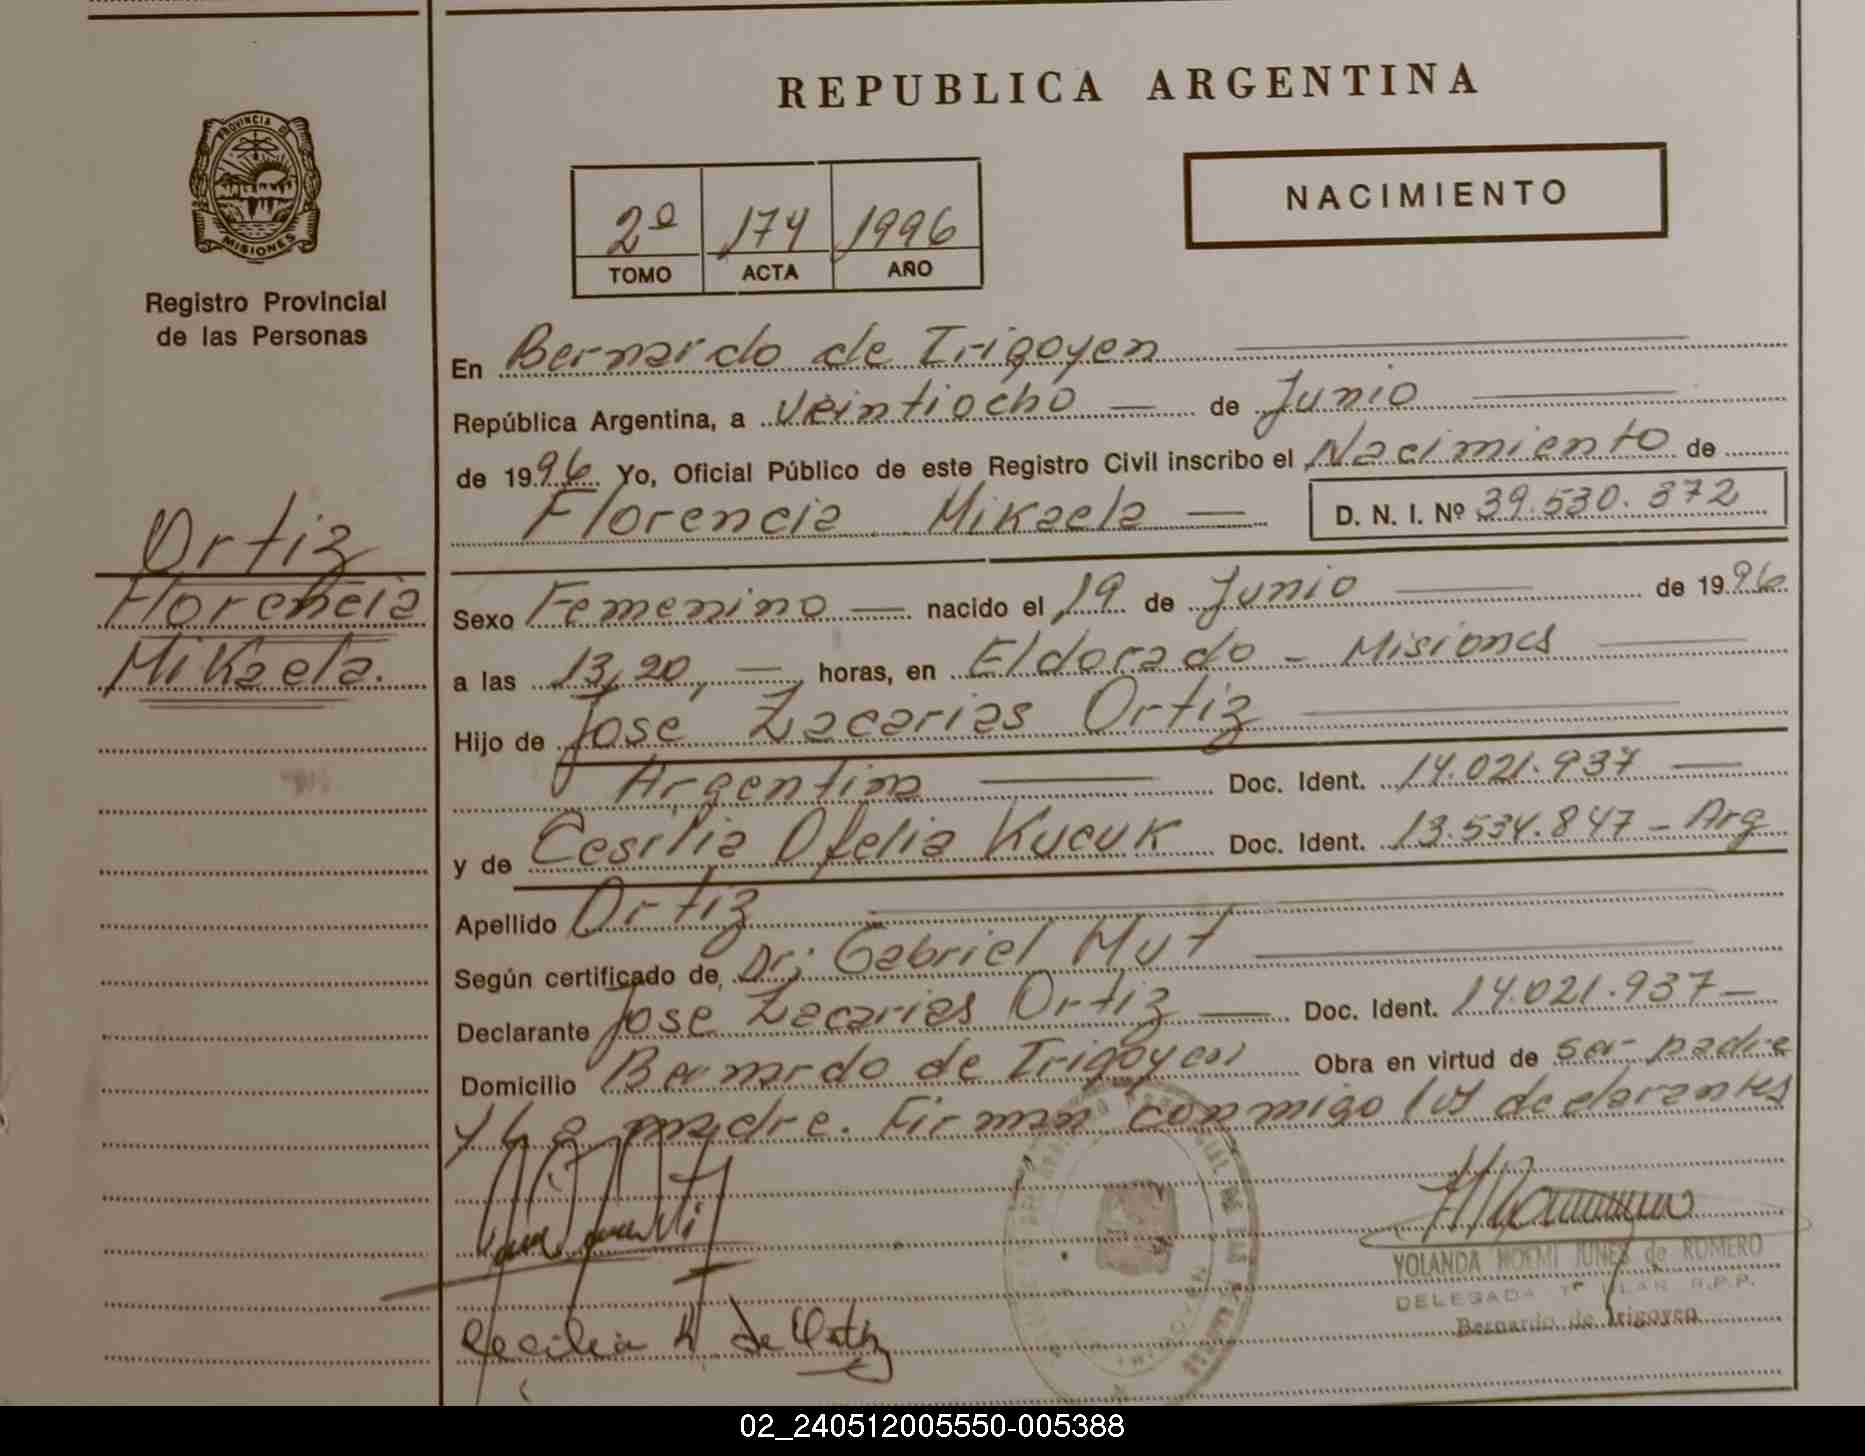 REPUBLICA ARGENTINA
NACIMIENTO
2º 174 1996
TOMO ACTA AÑO
PROVINCIA D
MISIONES
Registro Provincial
de las Personas
Ortiz
Florencia
Mikaela.
En Bernardo de Irigoyen
República Argentina, a veintiocho — de Junio
de 1996 Yo, Oficial Público de este Registro Civil inscribo el Nacimiento de
Florencia Mikaela — D. N. I. Nº 39.530.372
Sexo Femenino — nacido el 19 de Junio — de 1996
a las 13,20, — horas, en Eldorado - Misiones
Hijo de Jose Zacarias Ortiz
Argentina — Doc. Ident. 14.021.937 —
y de Cesilia Ofelia Kucuk Doc. Ident. 13.534.847 - Arg
Apellido Ortiz
Según certificado de, Dr; Gabriel Mut
Declarante Jose Zacarias Ortiz — Doc. Ident. 14.021.937 —
Domicilio Bernardo de Irigoyen Obra en virtud de ser padre
y la madre. Firman conmigo los declarantes
YOLANDA NOEMI JUNES de ROMERO
DELEGADA R.P.P.
Bernardo de Irigoyen
Cecilia K. de Ortiz
02_240512005550-005388